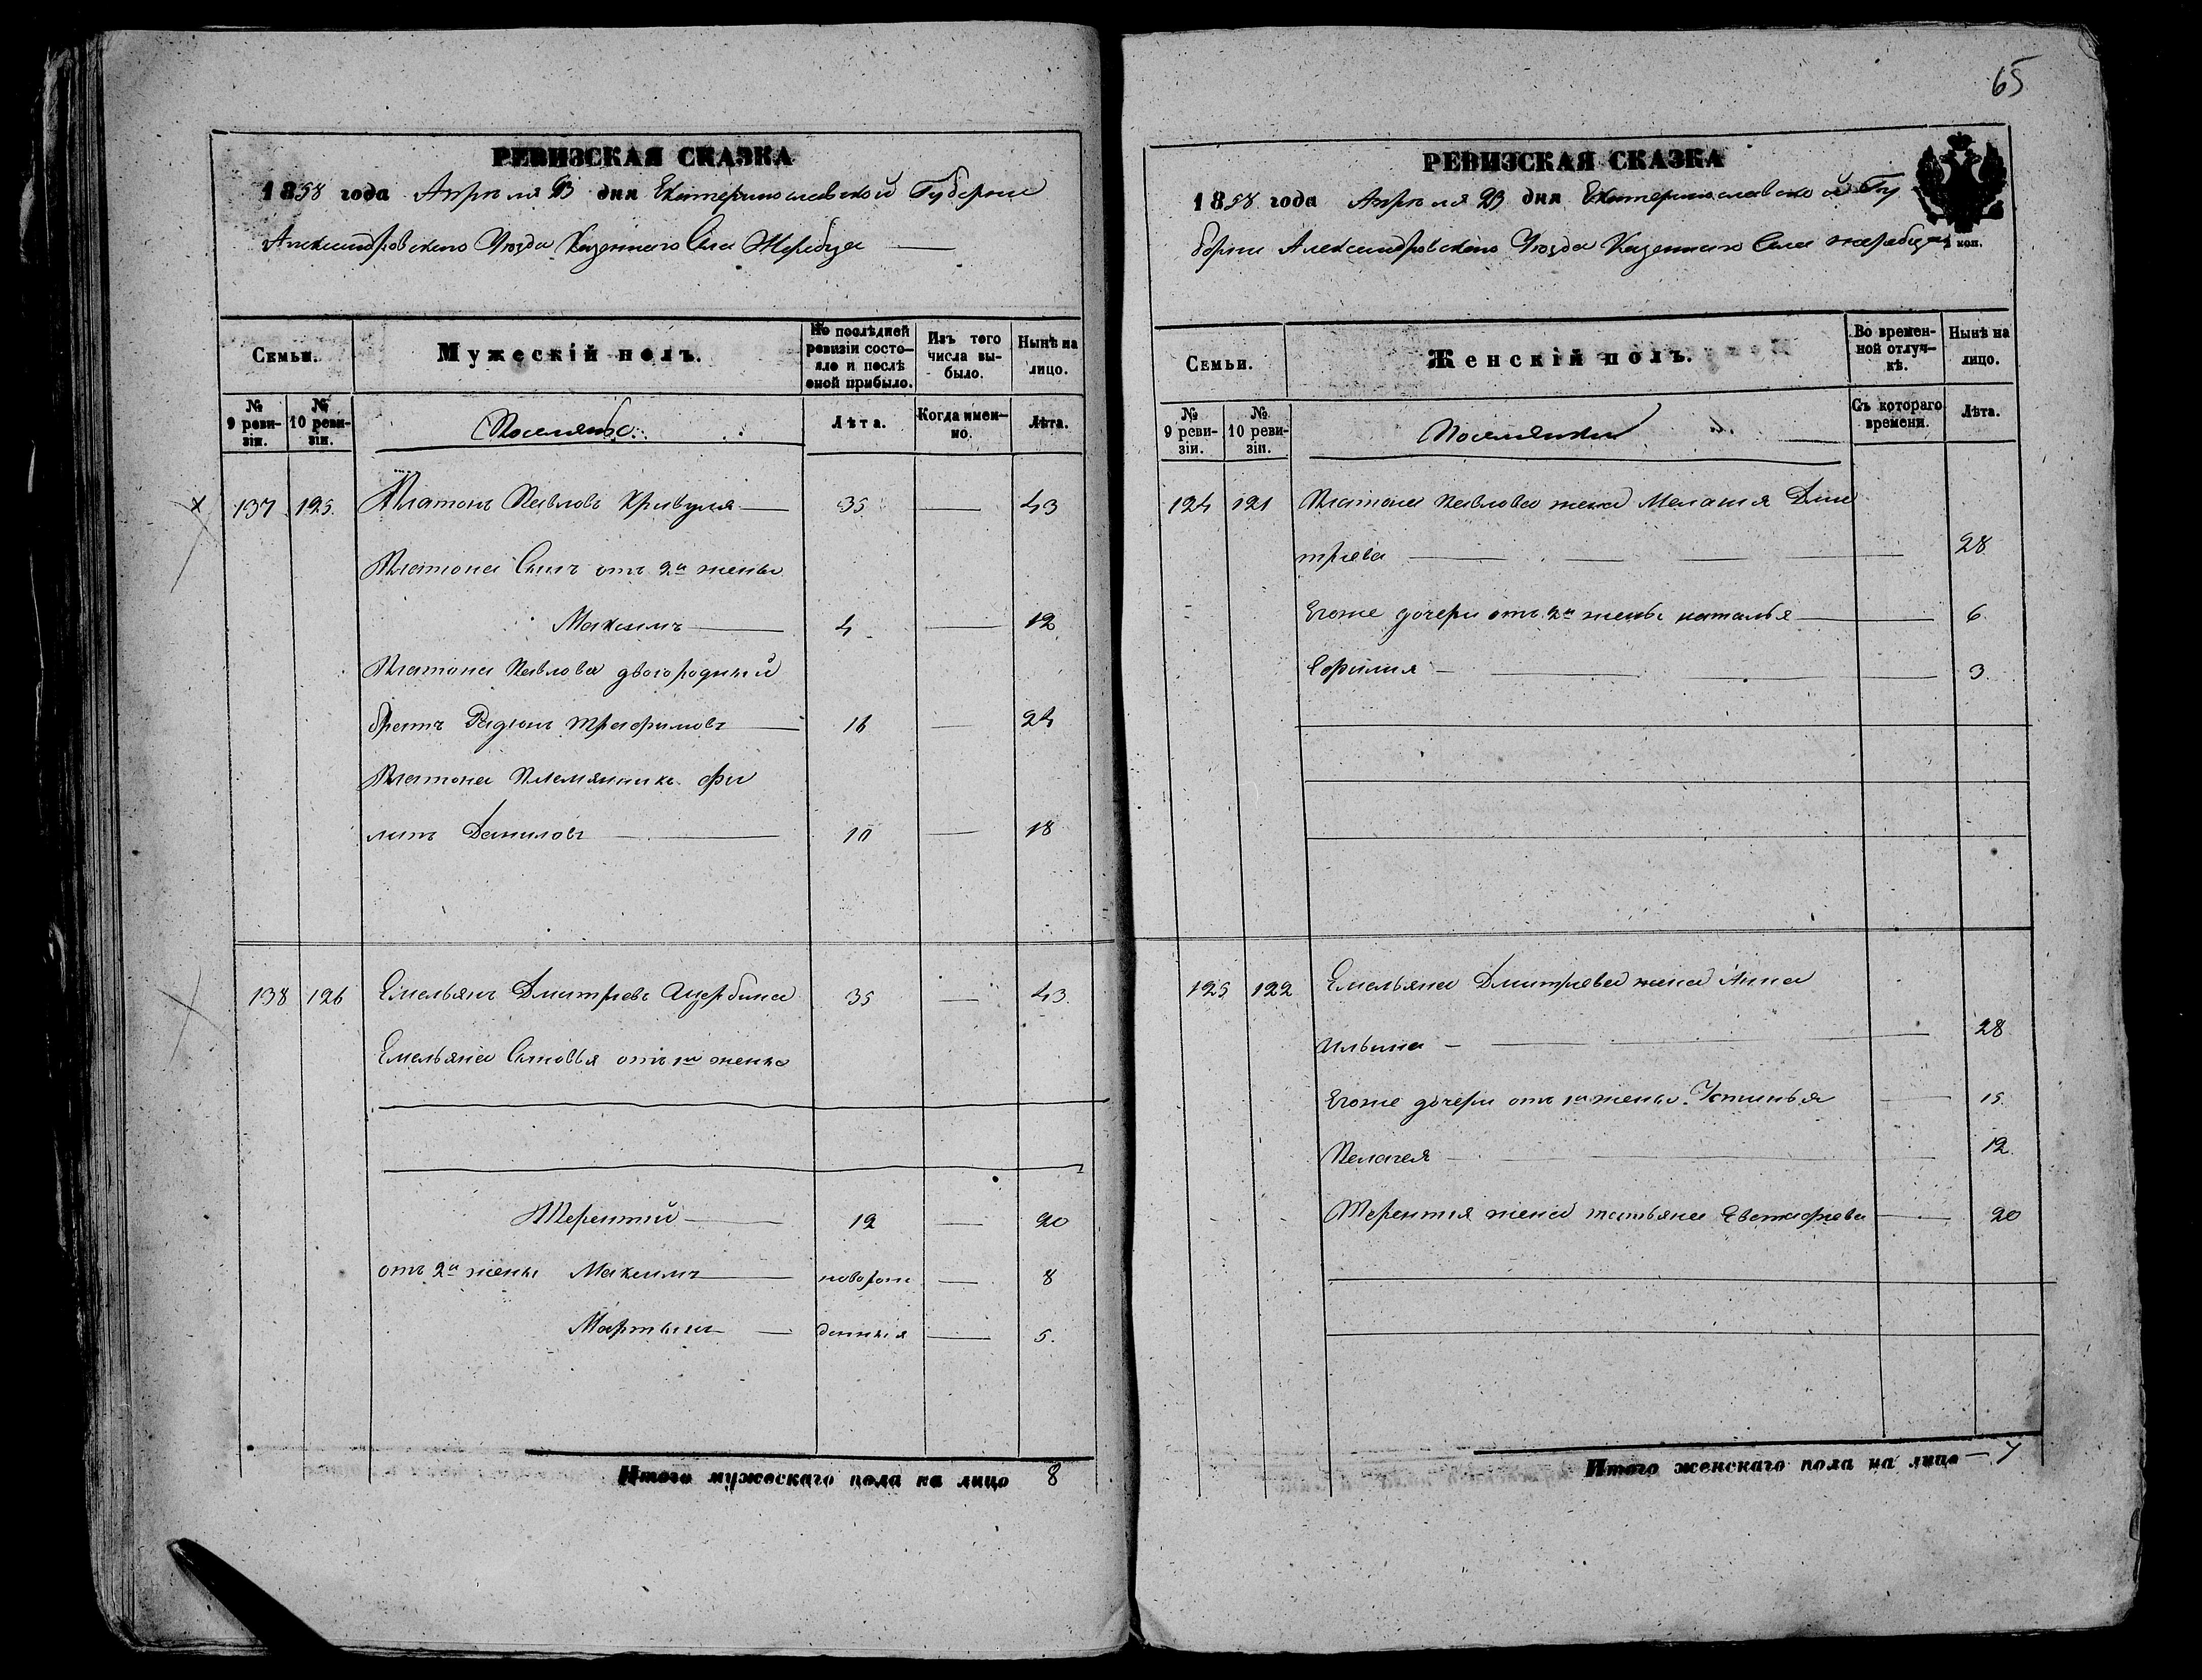 РЕВИЗСКАЯ СКАЗКА
1858 года Апреля 23 дня Екатеринославской Губернiи
Александровскаго Уезда Казеннаго Села Жеребца
Семьи.
Мужескій полъ.
По послѣдней ревизіи состояло и послѣ оной прибыло.
Изъ того числа выбыло.
Нынѣ на лицо.
№ 9 ревизіи.
№ 10 ревизіи.
Поселяне
Лѣта.
Когда именно.
Лѣта.
137 125. Платонъ Павловъ Кривуля 35 43
Платона Сынъ отъ 2й жены
Максимъ 4 12
Платона Павлова двоюродный
братъ Радионъ Трафимовъ 16 24
Платона Племянникъ Фи
липъ Даниловъ 10 18
138 126 Емельянъ Дмитріевъ Щербина 35 43.
Емельяна Сыновья отъ 1й жены
Терентий 12 20
отъ 2й жены Максимъ новорож 8
Мартынъ денныя 5.
Итого мужескаго пола на лицо 8
65
РЕВИЗСКАЯ СКАЗКА
1858 года Апреля 23 дня Екатеринославской Гу
бернiи Александровскаго Уезда Казеннаго Села жеребца
коп.
Семьи.
Женскій полъ.
Во временной отлучкѣ.
Нынѣ на лицо.
№ 9 ревизіи.
№ 10 ревизіи.
Поселянки
Съ котораго времени.
Лѣта.
124 121 Платона Павлова жена Мелания Дми
триева 28
Егоже дочери отъ 2й жены наталья 6
3
125 122 Емельяна Дмитриева жена Анна
Ильина 28
Егоже дочери отъ 1й жены Устинья 15.
Пелагея 12
Терентия жена татьяна Евстафиева 20
Итого женскаго пола на лицо 7